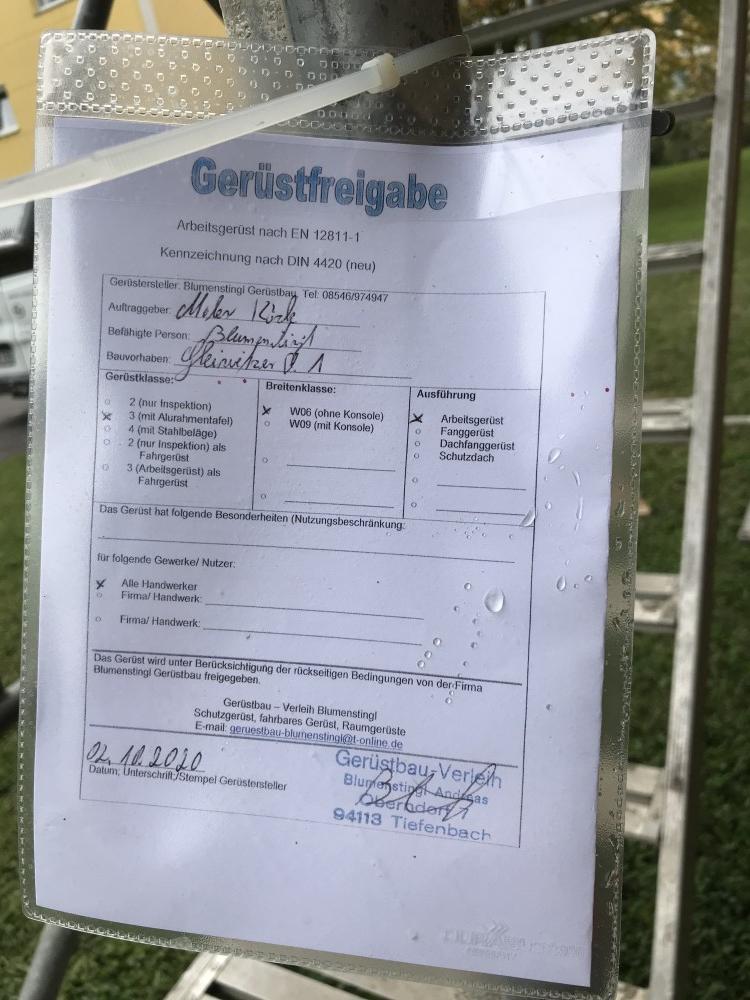 Gerüstfreigabe
Arbeitsgerüst nach EN 12811-1
Kennzeichnung nach DIN 4420 (neu)
Gerüstersteller: Blumenstingl Gerüstbau, Tel: 08546/974947
Auftraggeber: Maler
Befähigte Person: Blumenstingl
Bauvorhaben: Gleiwitzer 1
Gerüstklasse:
2 (nur Inspektion)
3 (mit Alurahmentafel)
4 (mit Stahlbeläge)
2 (nur Inspektion) als
Fahrgerüst
3 (Arbeitsgerüst) als
Fahrgerüst
Breitenklasse:
W06 (ohne Konsole)
W09 (mit Konsole)
Ausführung
Arbeitsgerüst
Fanggerüst
Dachfanggerüst
Schutzdach
Das Gerüst hat folgende Besonderheiten (Nutzungsbeschränkung:
für folgende Gewerke/ Nutzer:
Alle Handwerker
Firma/ Handwerk:
Firma/ Handwerk:
Das Gerüst wird unter Berücksichtigung der rückseitigen Bedingungen von der Firma
Blumenstingl Gerüstbau freigegeben.
Gerüstbau – Verleih Blumenstingl
Schutzgerüst, fahrbares Gerüst, Raumgerüste
E-mail: geruestbau-blumenstingl@t-online.de
02.10.2020
Datum; Unterschrift/Stempel Gerüstersteller
Gerüstbau-Verleih
Blumenstingl Andreas
Oberndorf 1
94113 Tiefenbach